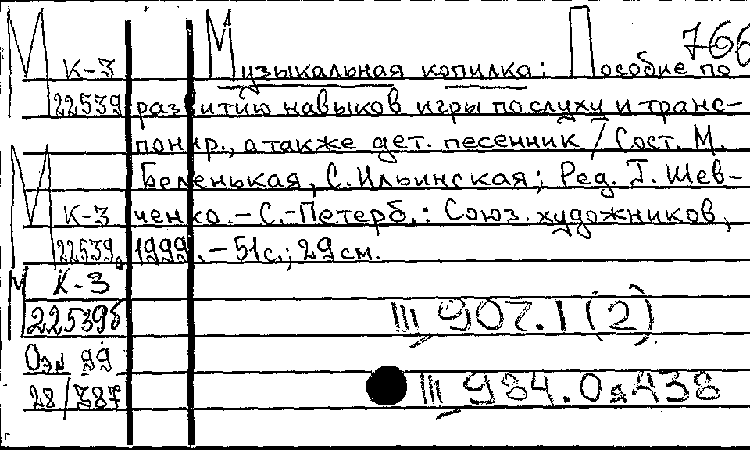 766
М К-3 Музыкальная копилка: Пособие по
22539 развитию навыков игры по слуху и транс-
понир., а также дет. песенник / Сост. М.
Беленькая, С. Ильинская; Ред. Г. Шев-
М К-3 ченко. – С.-Петерб.: Союз художников,
22539а 1999. – 51 с.; 29 см.
М К-3
22539б III 907.1 (2)
Оэл 99
28/387 III 984.0я438